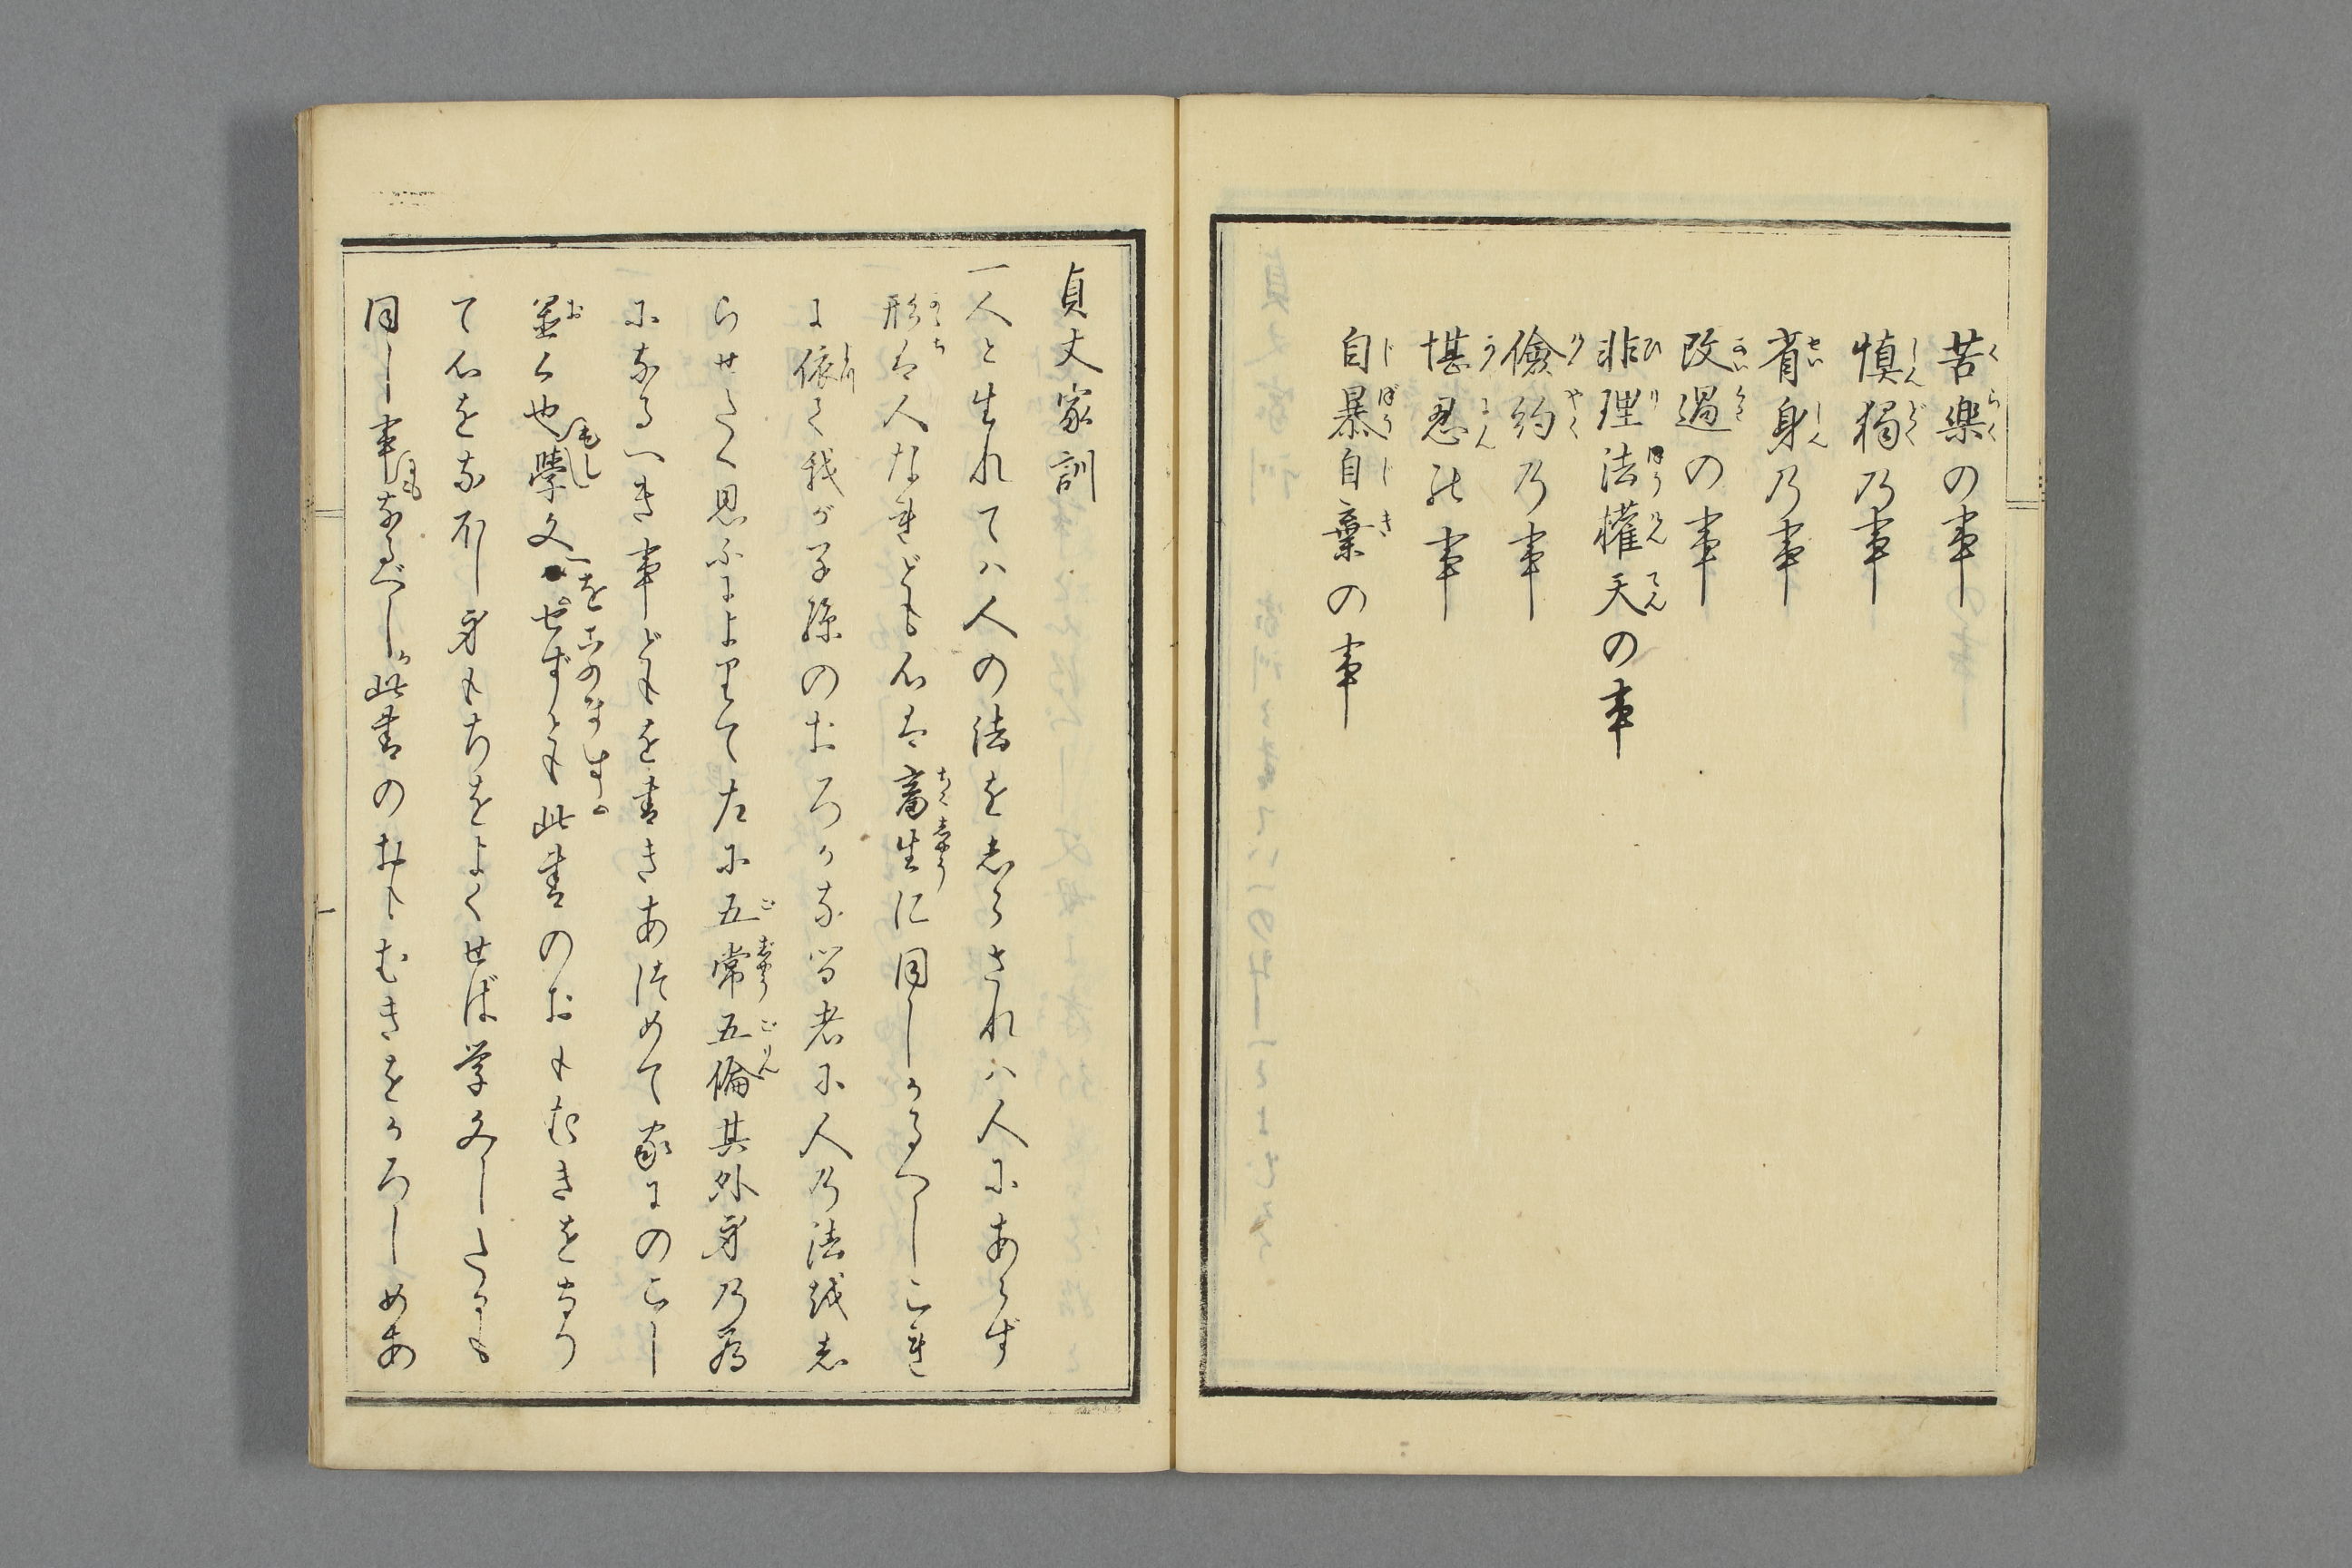 苦楽の事
慎獨乃事
省身乃事
改過の事
非理法権天の事
儉約乃事
堪忍の事
自暴自棄の事
貞丈家訓
一人と生れてハ人の法をしらされハ人にあらず
形は人なれども心は畜生に同しかるへしこれ
に依て我が子孫のおろかなる者に人乃法をし
らせたく思ふによりて左に五常五倫其外身乃為
になるへき事どもを書きあつめて家にのこし
置く也もし学文をこのまずせずとも此書のおもむきを守り
て心をなほし身もちをよくせば学文したるも
同し事なるべし此書のおもむきをかろしめあ